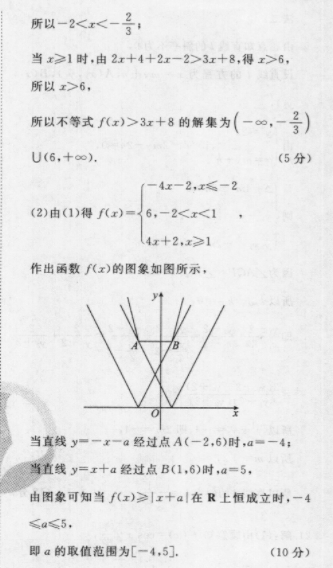 所以-2<x<-2/3;
当 x≥1 时,由 2x+4+2x-2>3x+8,得 x>6,
所以 x>6,
所以不等式 f(x)>3x+8 的解集为(-∞,-2/3)
∪(6,+∞). (5 分)
(2)由(1)得 f(x)={-4x-2,x≤-2
6,-2<x<1 ,
4x+2,x≥1
作出函数 f(x)的图象如图所示,
y
A B
O x
当直线 y=-x-a 经过点 A(-2,6)时,a=-4;
当直线 y=x+a 经过点 B(1,6)时,a=5,
由图象可知当 f(x)≥|x+a|在 R 上恒成立时,-4
≤a≤5,
即 a 的取值范围为[-4,5]. (10 分)